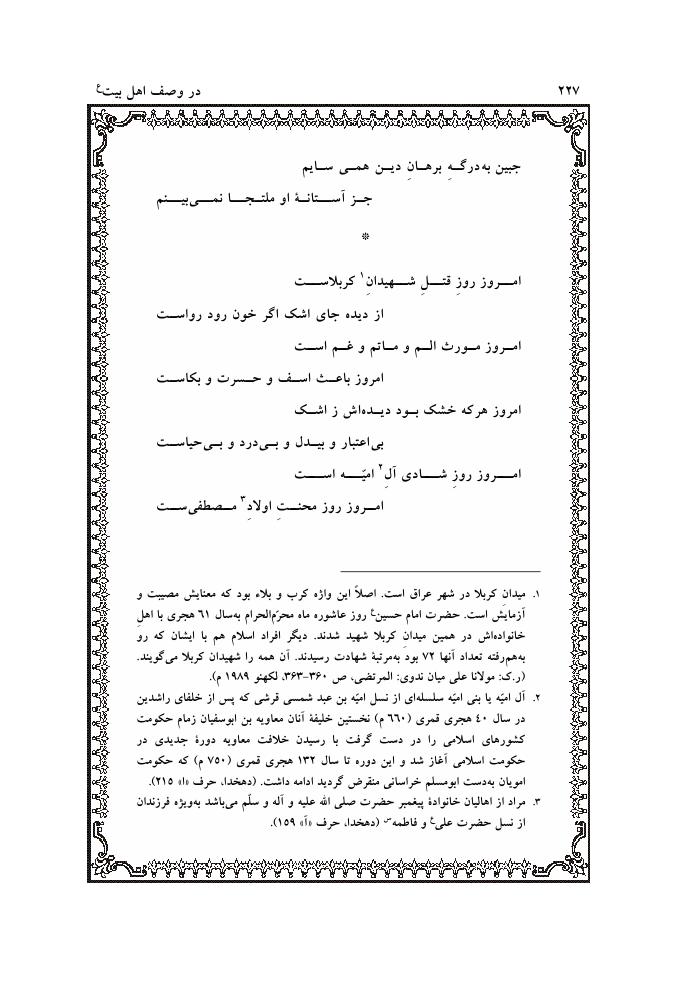 ۲۲۷ در وصف اهل بیت؏
جبین به‌درگـهِ برهـانِ دیـن همـی سـایم
جـز آسـتانهٔ او ملتجـا نمـی‌بینـم
*
امـروز روزِ قتـلِ شـهیدانِ۱ کربلاسـت
از دیده جای اشک اگر خون رود رواسـت
امـروز مـورث الـم و مـاتم و غـم اسـت
امروز باعـث اسـف و حـسرت و بکاسـت
امروز هرکه خشک بـود دیـده‌اش ز اشـک
بی‌اعتبار و بیـدل و بـی‌درد و بـی‌حیاسـت
امـروز روزِ شـادی آلِ۲ امیّـه اسـت
امـروز روز محنـتِ اولادِ۳ مـصطفی‌سـت
۱. میدانِ کربلا در شهر عراق است. اصلاً این واژه کرب و بلاء بود که معنایش مصیبت و
آزمایش است. حضرت امام حسین؏ روز عاشوره ماه محرّم‌الحرام به‌سال ۶۱ هجری با اهلِ
خانواده‌اش در همین میدانِ کربلا شهید شدند. دیگر افراد اسلام هم با ایشان که رو
به‌هم‌رفته تعداد آنها ۷۲ بود به‌مرتبهٔ شهادت رسیدند. آن همه را شهیدان کربلا می‌گویند.
(ر.ک: مولانا علی میان ندوی: المرتضی، ص ۳۶۰-۳۶۳، لکهنو ۱۹۸۹ م).
۲. آل امیّه یا بنی امیّه سلسله‌ای از نسل امیّه بن عبد شمسی قرشی که پس از خلفای راشدین
در سال ۴۰ هجری قمری (۶۶۰ م) نخستین خلیفهٔ آنان معاویه بن ابوسفیان زمام حکومت
کشورهای اسلامی را در دست گرفت با رسیدن خلافت معاویه دورهٔ جدیدی در
حکومت اسلامی آغاز شد و این دوره تا سال ۱۳۲ هجری قمری (۷۵۰ م) که حکومت
امویان به‌دست ابومسلم خراسانی منقرض گردید ادامه داشت. (دهخدا، حرف «ا» ۲۱۵).
۳. مراد از اهالیان خانوادهٔ پیغمبر حضرت صلی الله علیه و آله و سلّم می‌باشد به‌ویژه فرزندان
از نسل حضرت علی؏ و فاطمهس (دهخدا، حرف «آ» ۱۵۹).